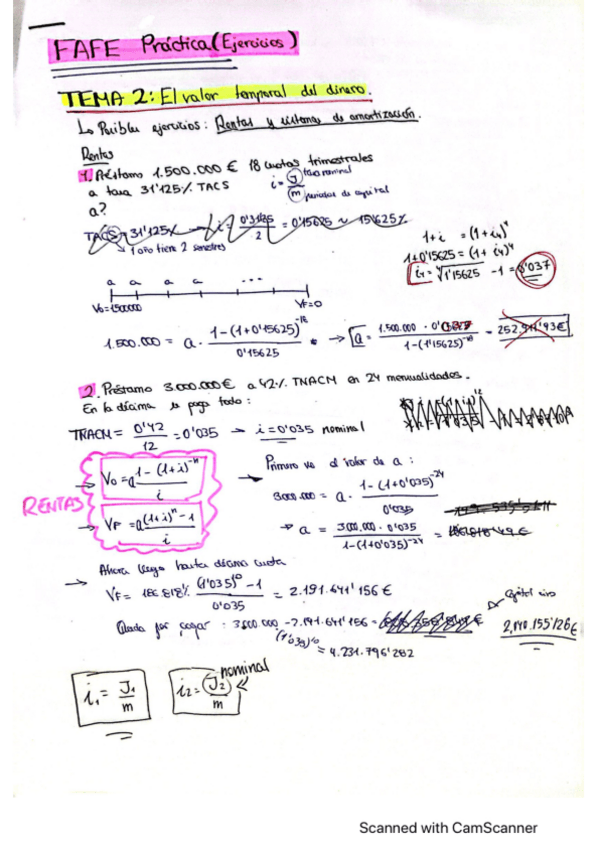 FAFE Práctica (Ejercicios)
TEMA 2: El valor temporal del dinero.
↳ Posibles ejercicios: Rentas y sistemas de amortización.
Rentas
1. Préstamo 1.500.000 € 18 cuotas trimestrales
a tasa 31'125% TACS
i = J tasa nominal
m periodos de capital
a?
TACS = 31'125% → i = 0'3125 / 2 = 0'15625 ≈ 15'625%
↳ 1 año tiene 2 semestres
1+i = (1+i4)^4
1+0'15625 = (1+i4)^4
i4 = ∜1'15625 - 1 = 0'037
a a a a ...
V0=1500000 VF=0
1.500.000 = a · 1-(1+0'15625)^-18 / 0'15625 → a = 1.500.000 · / 1-(1'15625)^-18 =
2. Préstamo 3.000.000€ a 42% TNACM en 24 mensualidades.
En la décima se paga todo:
TNACM = 0'42 / 12 = 0'035 → i = 0'035 nominal
RENTAS
V0 = a 1-(1+i)^-n / i
VF = a (1+i)^n - 1 / i
Primero ve el valor de a:
3000.000 = a · 1-(1+0'035)^-24 / 0'035
→ a = 300.000 · 0'035 / 1-(1+0'035)^-24 =
Ahora luego hasta décima cuota
→ VF = 186.818% (1'035)^10 - 1 / 0'035 = 2.191.641'156 €
Queda por pagar: 3.000.000 - 2.191.641'156 =
(1'035)^10
= 4.231.796'282
2,040.155'126€
i1 = J1 / m
i2 = J2 / m
nominal
Scanned with CamScanner